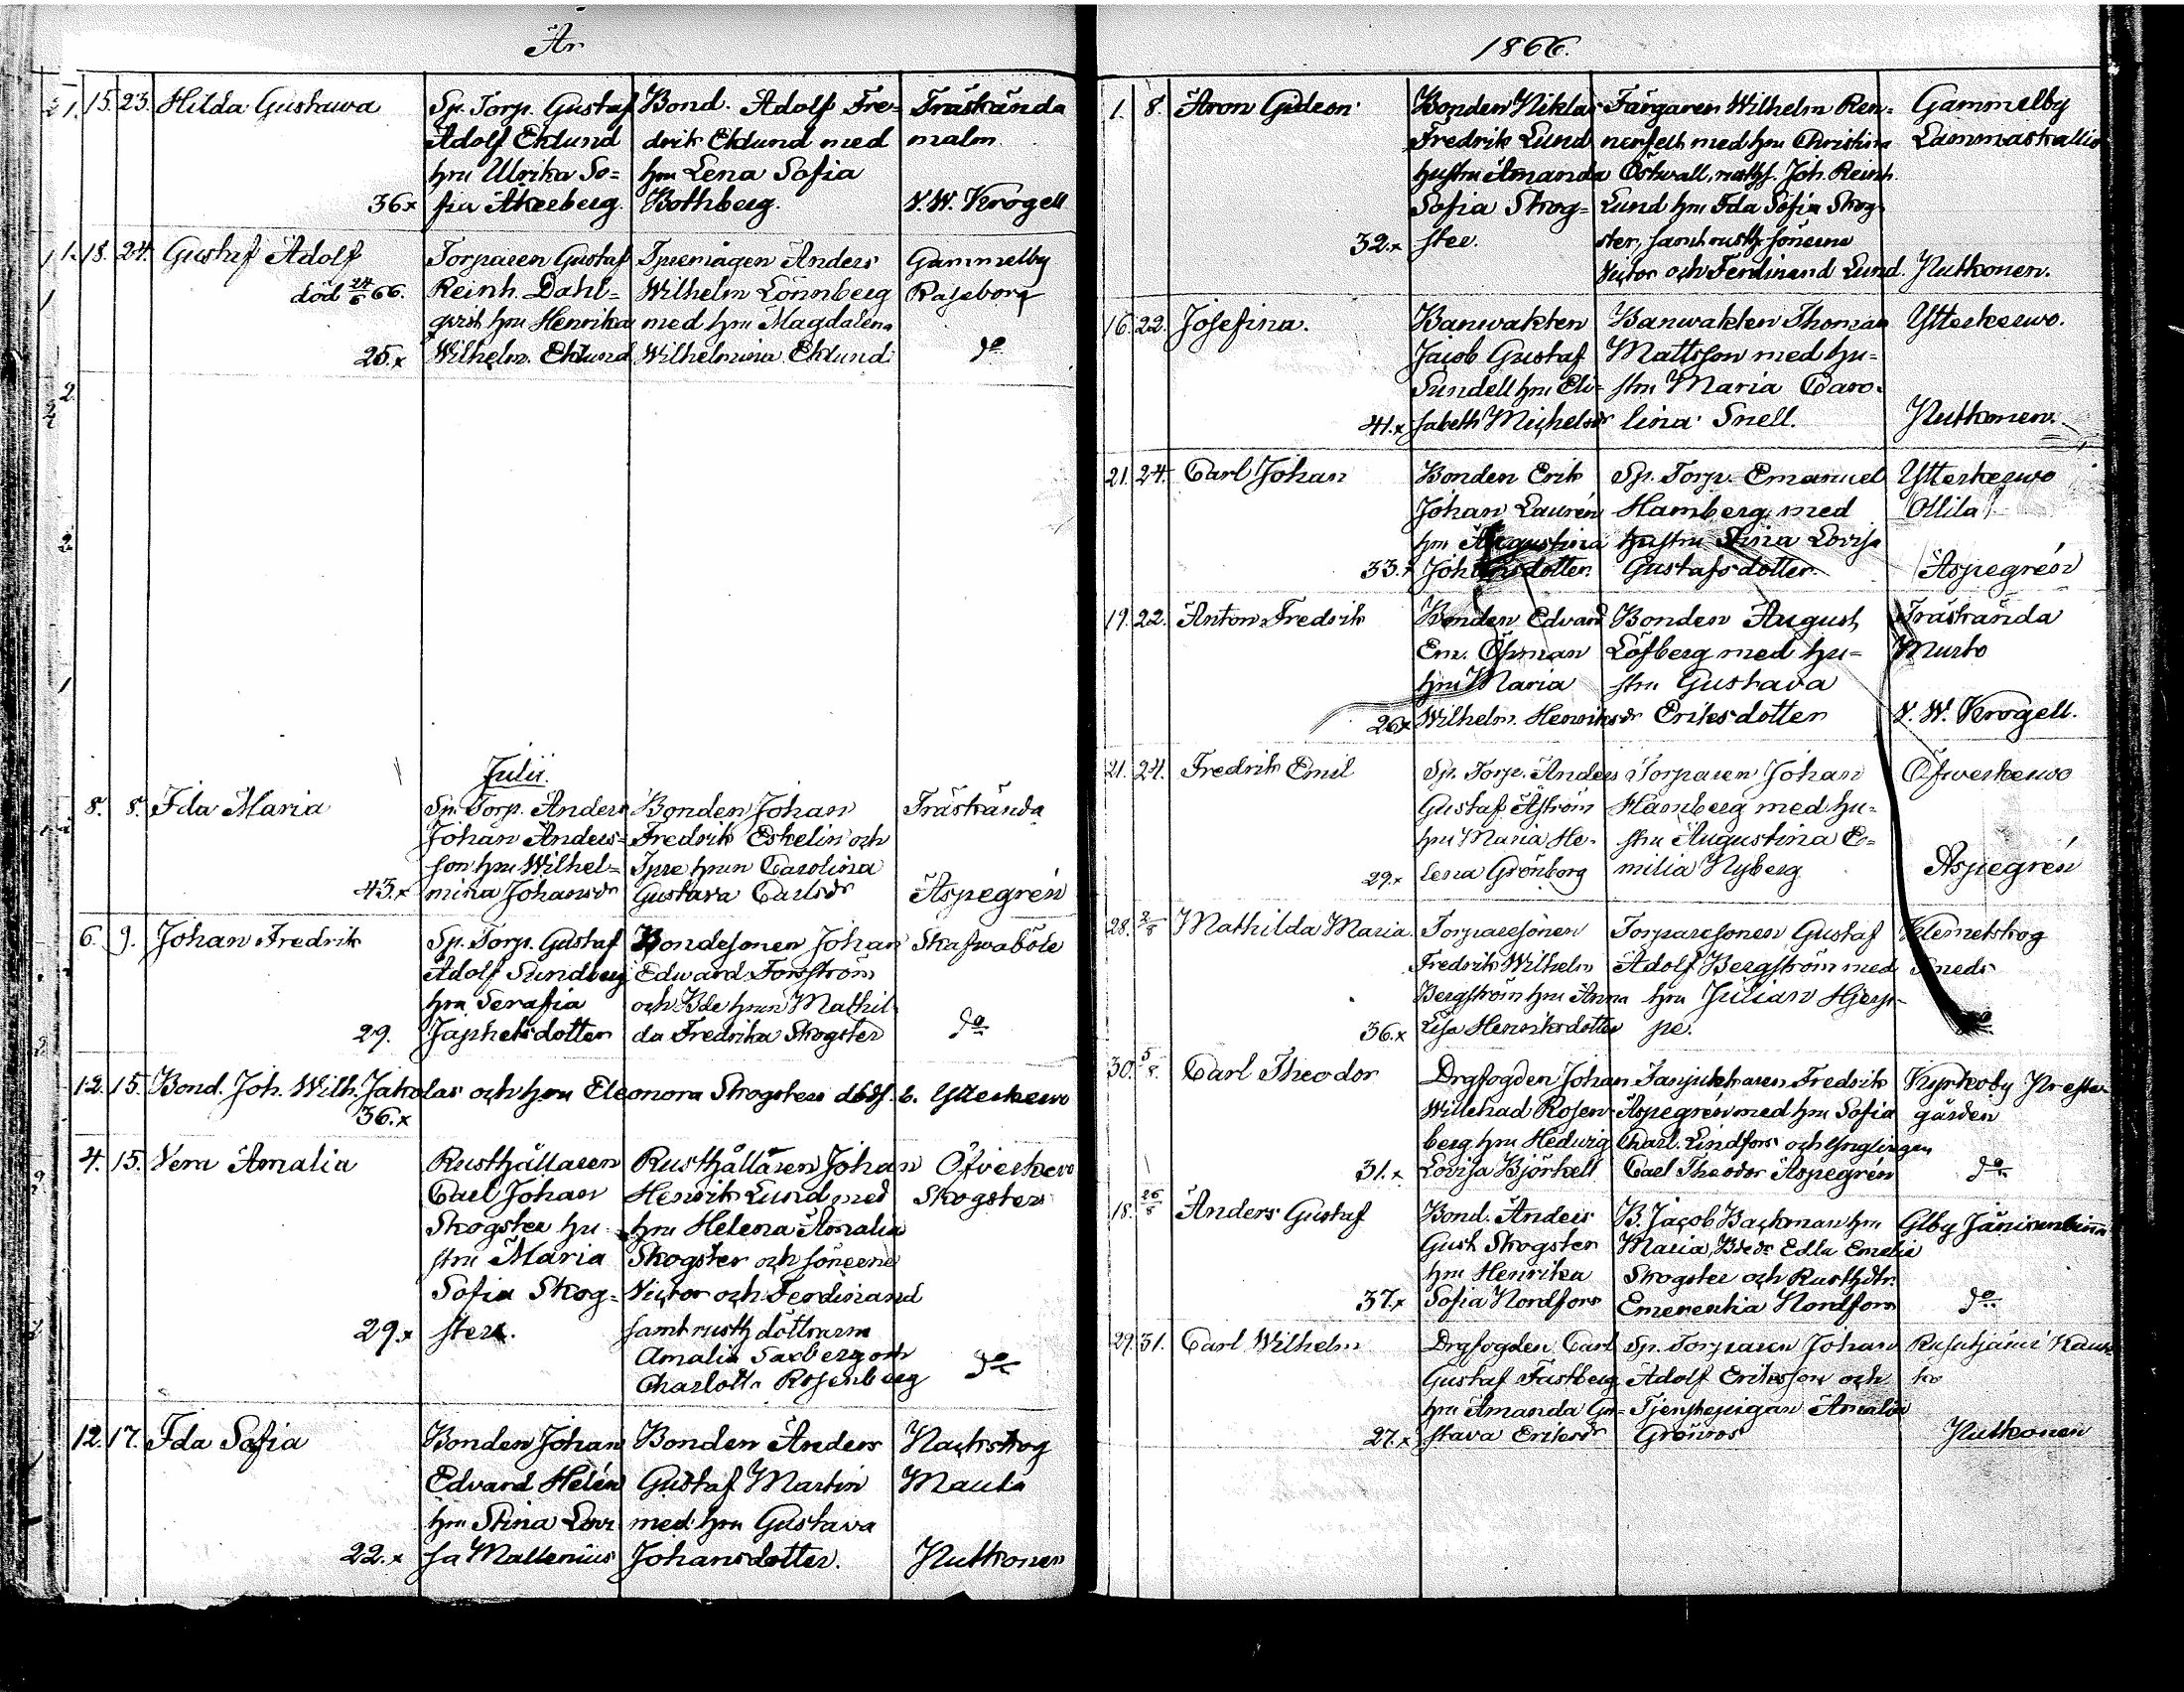 År
15. 23. Hilda Gustawa
Sp. Torp. Gustaf
Adolf Eklund
hru Ulrika So=
36× fia Åkerberg.
Bond. Adolf Fre=
drik Eklund med
hru Lena Sofia
Bothberg.
Träskända
malm
V. W. Krogell
18. 24. Gustaf Adolf
död 24/6 66.
Torparen Gustaf
Reinh. Dahl=
qvist hru Henrika
25.× Wilhelm. Eklund
Anders
Wilhelm Lönnberg
med hru Magdalena
Wilhelmina Eklund
Gammelby
Raseborg
do
Julii.
8. 8. Ida Maria
Sp. Torp. Anders
Johan Anders=
son hru Wilhel=
43.× mina Johansdr
Bonden Johan
Fredrik Eskelin och
hrun Carolina
Gustava Carlsdr
Träskända
Aspegrén
6. 9. Johan Fredrik
Sp. Torp. Gustaf
Adolf Sundberg
hru Serafia
29. Japhetsdotter
Bondesonen Johan
Edward Forsström
och Bdehrun Mathil
da Fredrika Skogster
Skafwaböle
do
12. 15. Bond. Joh. Wilh. Jakolas och hru Eleonora Skogsters b. Ytterkerwo
36.×
4. 15. Vera Amalia
Rusthållaren
Carl Johan
Skogster hu
stru Maria
Sofia Skog=
29.× ster.
Rusthållaren Johan
Henrik Lund med
hru Helena Amalia
Skogster och sönerne
Victor och Ferdinand
samt rusth döttrarna
Amalia Saxberg och
Charlotta Rosenberg
Öfverkerwo
Skogsters
do
12. 17. Ida Sofia
Bonden Johan
Edvard Helén
hru Stina Lovi
22.× sa Mallenius
Bonden Anders
Gustaf Martin
med hru Gustava
Johansdotter.
Nackskog
Maula
Nutkonen
1866.
1. 8. Aron Gideon
Bonden Niklas
Fredrik Lund
hustru Amanda
Sofia Skog=
32.× ster.
Färgaren Wilhelm Ren=
nerfelt med hru Christina
Östwall, rusth. Joh. Reinh.
Lund hru Ida Sofia Skog
ster, samt rusth. sönerne
Victor och Ferdinand Lund.
Gammelby
Lammaskallio
Nutkonen.
16. 22. Josefina.
Banwakten
Jacob Gustaf
Sundell hru Eli=
41.× sabeth Michelsdr
Banwakten Thomas
Mattsson med hu=
stru Maria Caro=
lina Snell.
Ytterkerwo.
Nutkonen.
21. 24. Carl Johan
Bonden Erik
Johan Laurén
hru Augustina
33.× Johansdotter.
Sp. Torp. Emanuel
Hamberg med
hustru Stina Lovisa
Gustafsdotter.
Ytterkerwo
Ollila
Aspegrén
19. 22. Anton Fredrik
Bonden Edvard
Em. Öhman
hru Maria
26× Wilhelm. Henriksdr
Bonden August
Löfberg med hu=
stru Gustava
Eriksdotter
Träskända
Murto
V. W. Krogell.
21. 24. Fredrik Emil
Sp. Torp. Anders
Gustaf Åström
hru Maria He=
29.× lena Grönborg
Torparen Johan
Hamberg med hu=
stru Augustina E=
milia Nyberg
Öfwerkerwo
Aspegrén
28. 2/8 Mathilda Maria
Torparesonen
Fredrik Wilhelm
Bergström hru Anna
36.× Lisa Henriksdotter
Torparesonen Gustaf
Adolf Bergström med
hru Julian Hjerp=
pe.
Klemetskog
Smeds
do
30. 5/8. Carl Theodor
Drgfogden Johan
Willehad Rosen=
berg hru Hedwig
31.× Lovisa Björkell
Fanjunkaren Fredrik
Aspegrén med hru Sofia
Charl. Lindfors och Ynglingen
Carl Theodor Aspegrén
Kyrkoby Preste
gården
do
18. 26/8 Anders Gustaf
Bond. Anders
Gust Skogster
hru Henrika
37.× Sofia Nordfors
B. Jacob Backman hru
Maria, Bdedr Edla Emelie
Skogster och Rusthdtr.
Emerentia Nordfors
Glby
do
29. 31. Carl Wilhelm
Drgfogden Carl
Gustaf Fastberg
hru Amanda Gu=
27.× stava Eriksdr
Sp. Torparen Johan
Adolf Eriksson och
Tjenstepigan Amalia
Grönroos
Rusutjärvi
Nutkonen